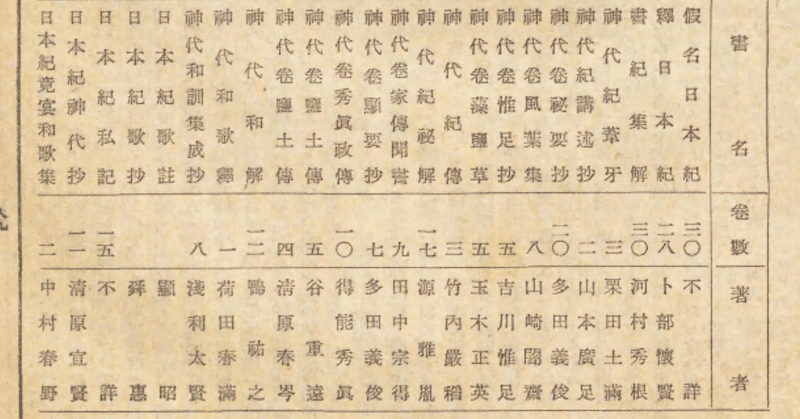 書名 卷數 著者
假名日本紀 三〇 不詳
釋日本紀 二八 卜部懷賢
書紀集解 三〇 河村秀根
神代紀葦牙 三 栗田土滿
神代紀講述抄 二 山本廣足
神代卷祕要抄 二〇 多田義俊
神代卷風葉集 八 山崎闇齋
神代卷惟足抄 五 吉川惟足
神代卷藻鹽草 五 玉木正英
神代紀傳 三 竹內嚴稻
神代紀祕解 一七 源雅胤
神代卷家傳聞書 九 田中宗得
神代卷顯要抄 七 多田義俊
神代卷秀眞政傳 一〇 得能秀眞
神代卷鹽土傳 五 谷重遠
神代卷鹽土傳 四 淸原春岑
神代和解 一二 鴨祐之
神代和歌釋 一 荷田春滿
神代和訓集成抄 八 淺利太賢
日本紀歌註 顯昭
日本紀歌抄 舜惠
日本紀私記 一五 不詳
日本紀神代抄 一一 淸原宣賢
日本紀竟宴和歌集 二 中村春野